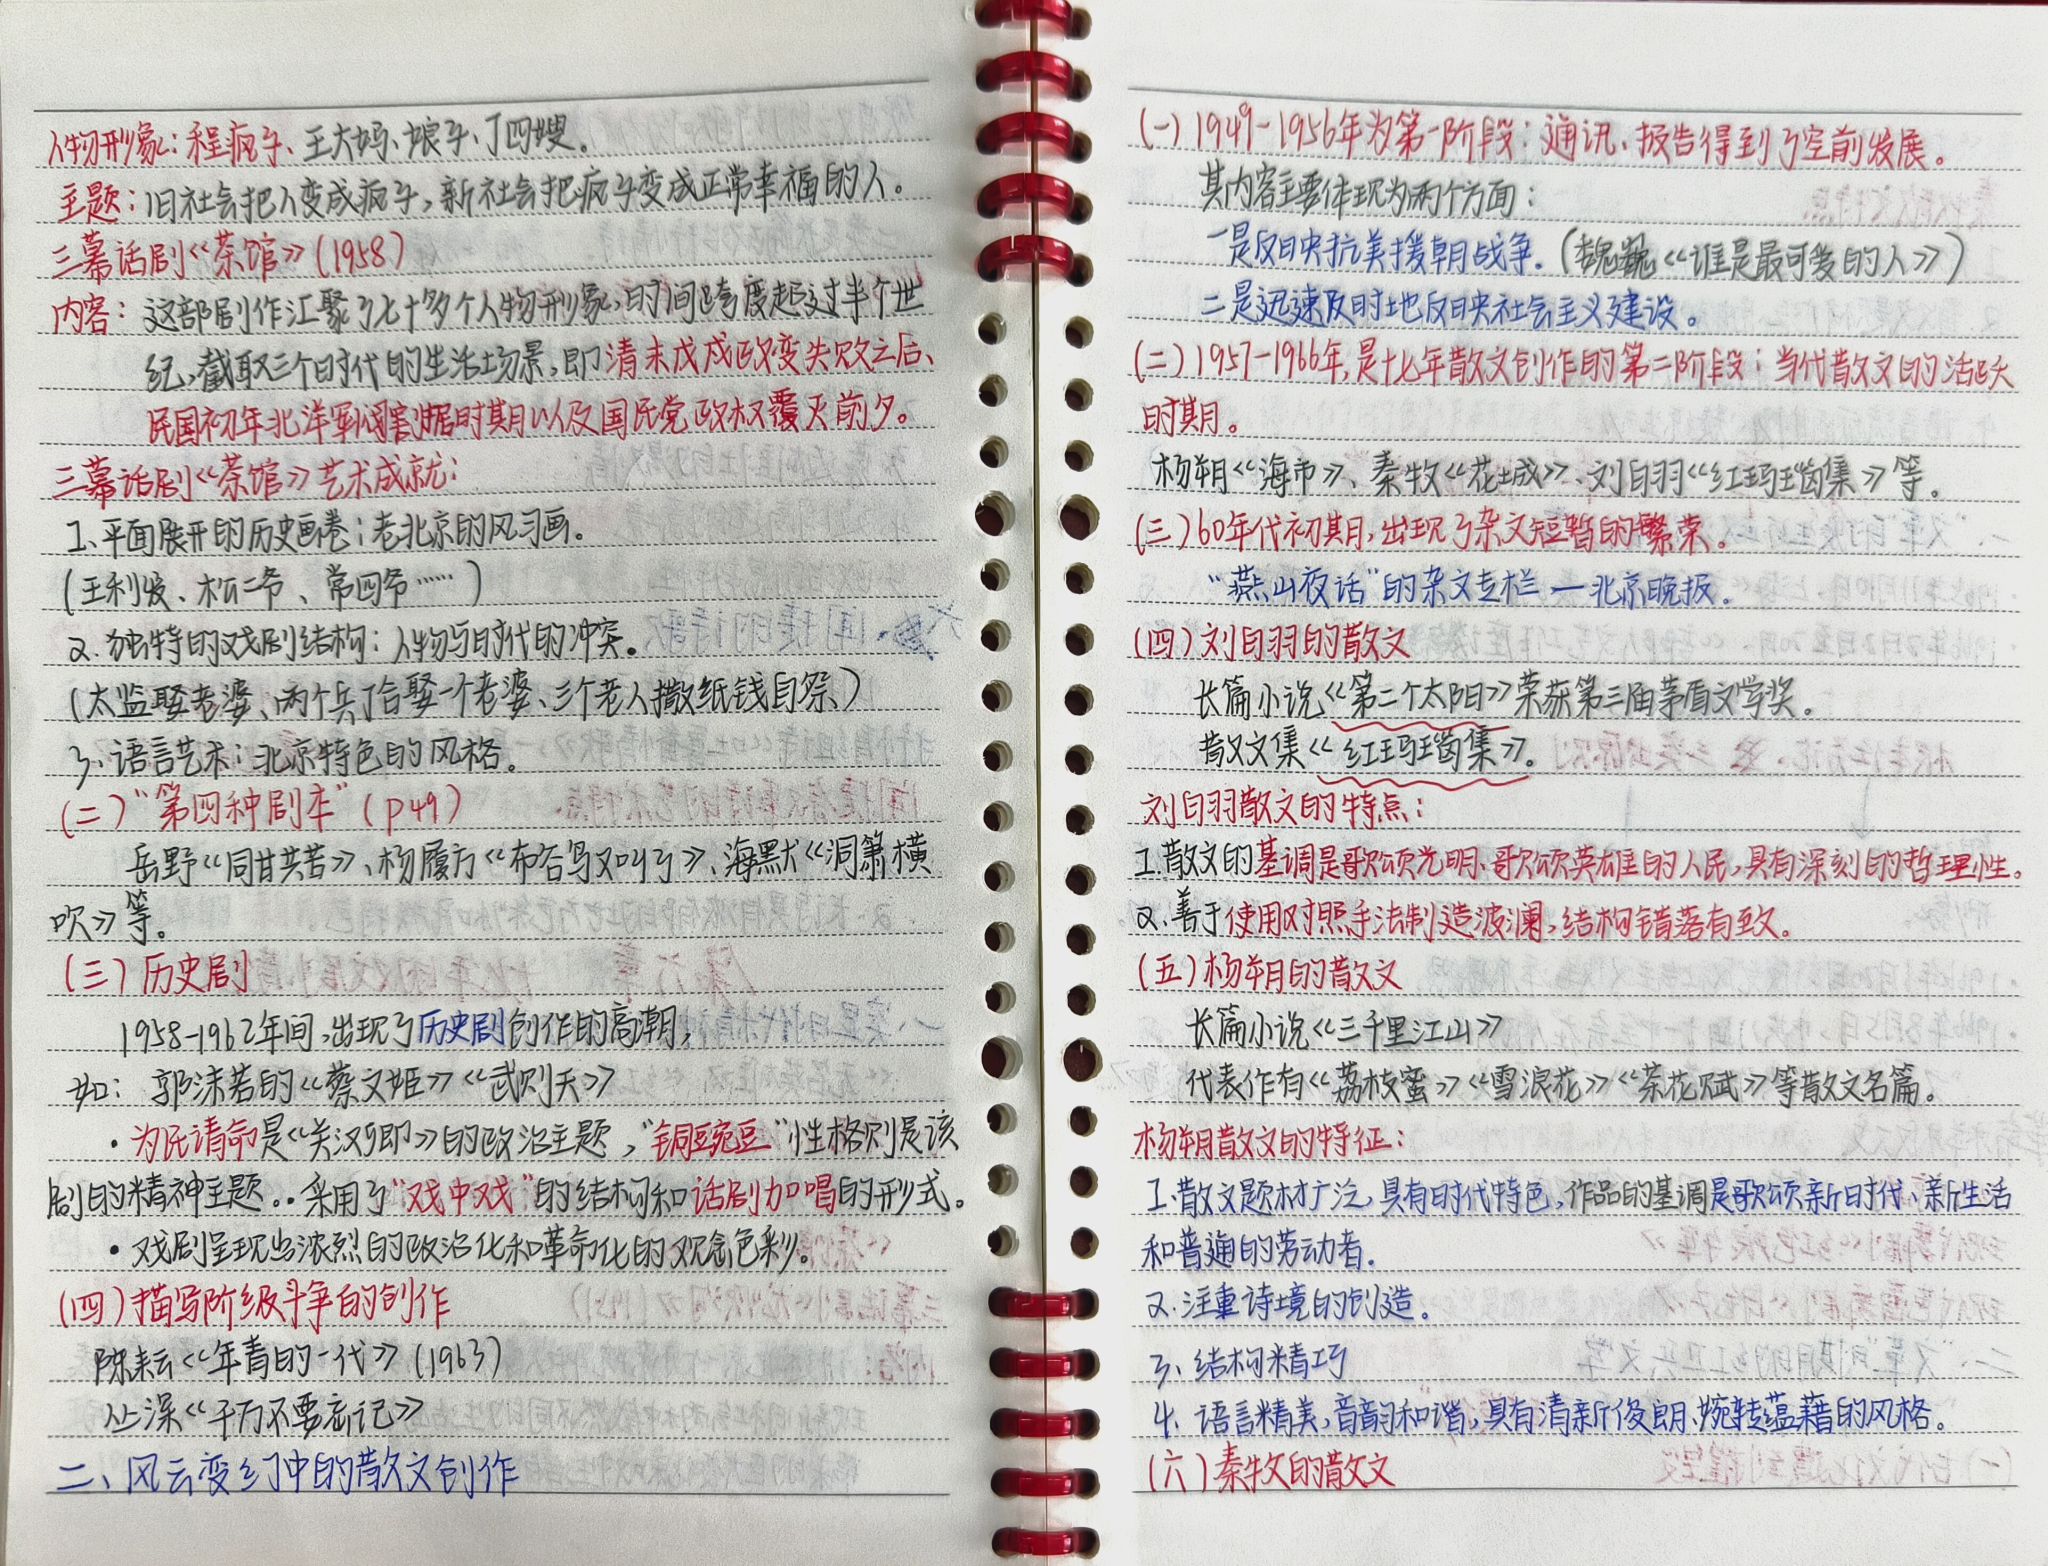 人物形象：程疯子、王大妈、娘子、丁四嫂。
主题：旧社会把人变成疯子，新社会把疯子变成正常幸福的人。
三幕话剧《茶馆》(1958)
内容：这部剧作汇聚了七十多个人物形象，时间跨度超过半个世
纪，截取三个时代的生活场景，即清末戊戌政变失败之后、
民国初年北洋军阀割据时期以及国民党政权覆灭前夕。
三幕话剧《茶馆》艺术成就：
1、平面展开的历史画卷；老北京的风习画。
(王利发、松二爷、常四爷……)
2. 独特的戏剧结构：人物与时代的冲突。
(太监娶老婆、两个兵丁合娶一个老婆、三个老人撒纸钱自祭)
3、语言艺术：北京特色的风格。
(二)"第四种剧本"(P49)
岳野《同甘共苦》、杨履方《布谷鸟又叫了》、海默《洞箫横
吹》等。
(三)历史剧
1958-1962年间，出现了历史剧创作的高潮，
如：郭沫若的《蔡文姬》《武则天》
·为民请命是《关汉卿》的政治主题，"铜豌豆"性格则是该
剧的精神主题。采用了"戏中戏"的结构和话剧加唱的形式。
·戏剧呈现出浓烈的政治化和革命化的观念色彩。
(四)描写阶级斗争的创作
陈耘《年青的一代》(1963)
丛深《千万不要忘记》
二、风云变幻中的散文创作
(一)1949-1956年为第一阶段：通讯、报告得到了空前发展。
其内容主要体现为两个方面：
一是反映抗美援朝战争.(魏巍《谁是最可爱的人》)
二是迅速及时地反映社会主义建设。
(二)1957-1966年，是十七年散文创作的第二阶段：当代散文的活跃
时期。
杨朔《海市》、秦牧《花城》、刘白羽《红玛瑙集》等。
(三)60年代初期，出现了杂文短暂的繁荣。
"燕山夜话"的杂文专栏—北京晚报.
(四)刘白羽的散文
长篇小说《第二个太阳》荣获第三届茅盾文学奖。
散文集《红玛瑙集》。
刘白羽散文的特点：
1.散文的基调是歌颂光明、歌颂英雄的人民，具有深刻的哲理性。
2.善于使用对照手法制造波澜，结构错落有致。
(五)杨朔的散文
长篇小说《三千里江山》
代表作有《荔枝蜜》《雪浪花》《茶花赋》等散文名篇。
杨朔散文的特征：
1.散文题材广泛，具有时代特色，作品的基调是歌颂新时代、新生活
和普通的劳动者.
2.注重诗境的创造。
3、结构精巧
4. 语言精美，音韵和谐，具有清新俊朗、婉转蕴藉的风格。
(六)秦牧的散文